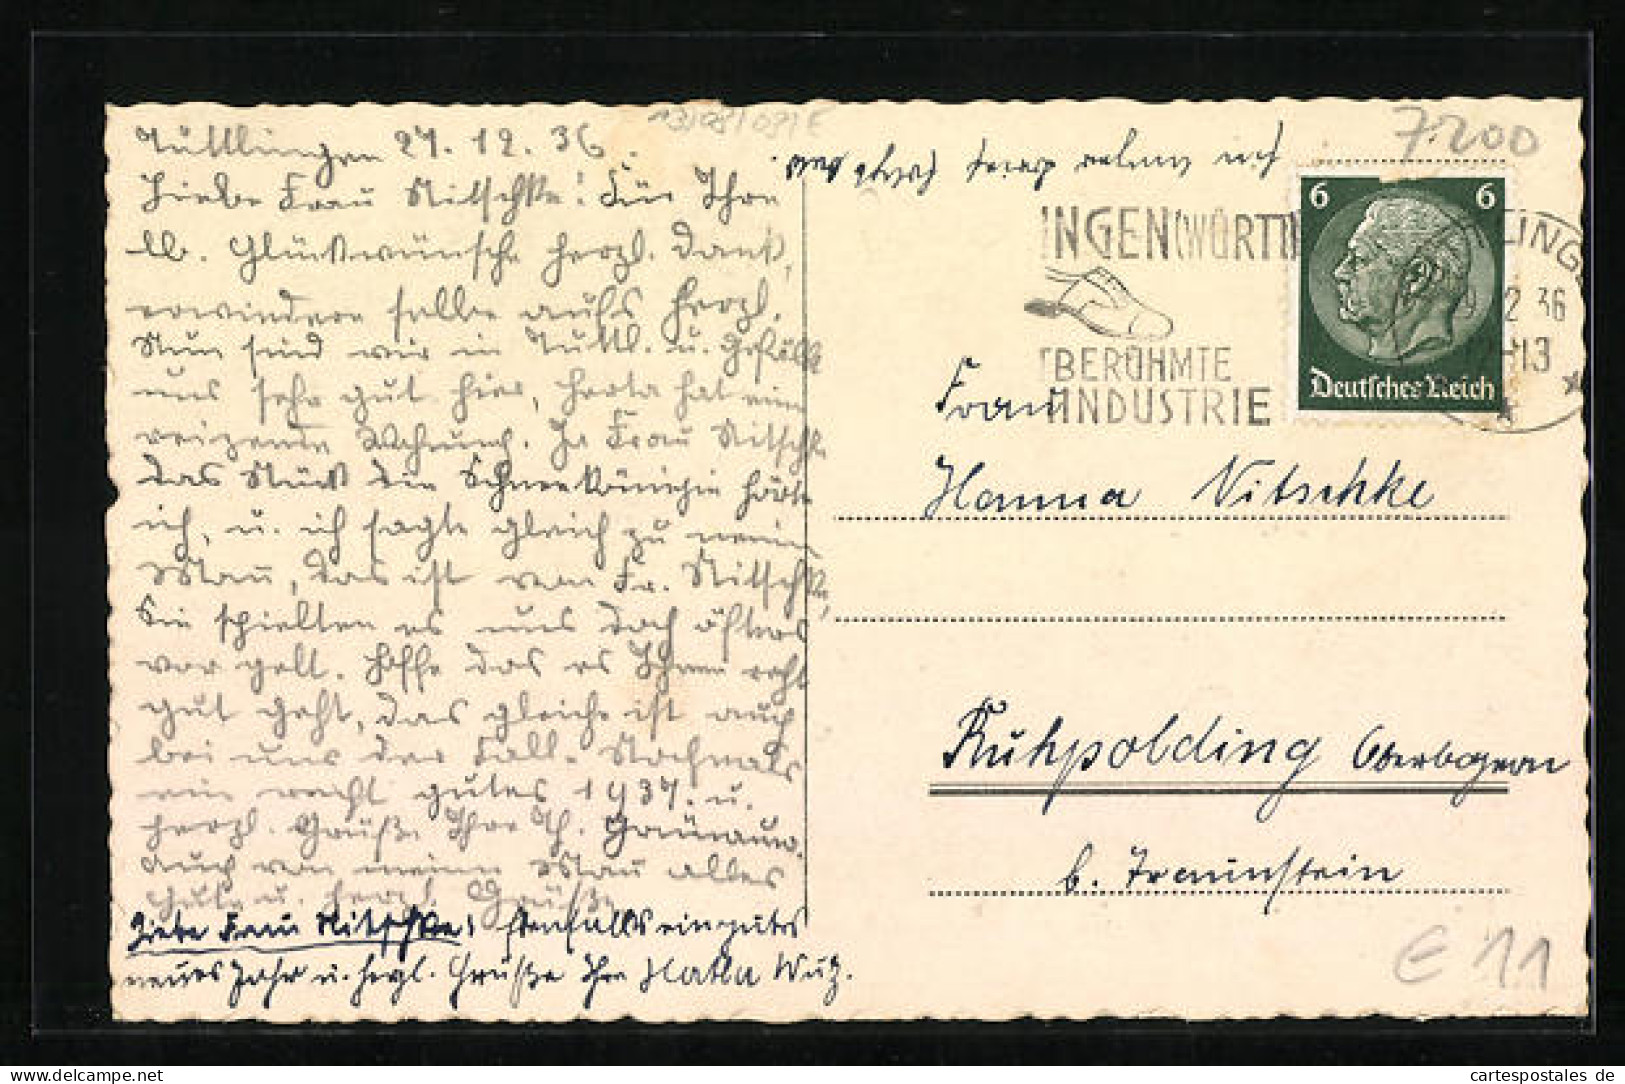 13/08/09/E
7.200
Tuttlingen 27.12.36.
Liebe Frau Nitschke! Für Ihre
lb. Glückwünsche herzl. Dank,
erwidere selbe aufs herzl.
Nun sind wir in Tuttl. u. gefällt
uns sehr gut hier, Herta hat eine
reizende Wohnung. Ja Frau Nitschke
das Stück die Schneekönigin hörte
ich, u. ich sagte gleich zu meine
Mau, das ist von Fr. Nitschke,
Sie spielten es uns doch öfters
vor gelt. Hoffe das es Ihnen recht
gut geht, das gleiche ist auch
bei uns der Fall. Nochmals
ein recht gutes 1937. u.
herzl. Grüße Ihre Th.
Auch von meine Mau alles
gute u. herzl. Grüße
Liebe Frau Nitschke! Ebenfalls ein gutes
neues Jahr u. herzl. Grüße Ihre
INGEN (WÜRTT)
BERÜHMTE
INDUSTRIE
6 6
Deutsches Reich
LING
12 36
-13
Frau
Hanna Nitschke
Ruhpolding Oberbayern
b. Traunstein
E 11
cartespostales de